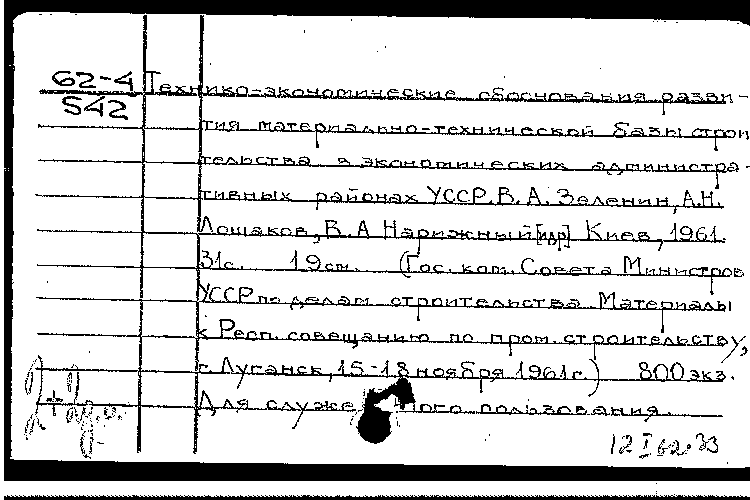 62-4 Технико-экономические обоснования разви-
542 тия материально-технической базы строи
тельства в экономических администра-
тивных районах УССР. В. А. Зеленин, А.Н.
Лошаков, В. А Нарижный [и др] Киев, 1961.
31с. 19см. (Гос. ком. Совета Министров
УССР по делам строительства Материалы
к Респ. совещанию по пром. строительству,
г. Луганск, 15-18 ноября 1961г.) 800 экз.
Для служе ного пользования.
12 I 62